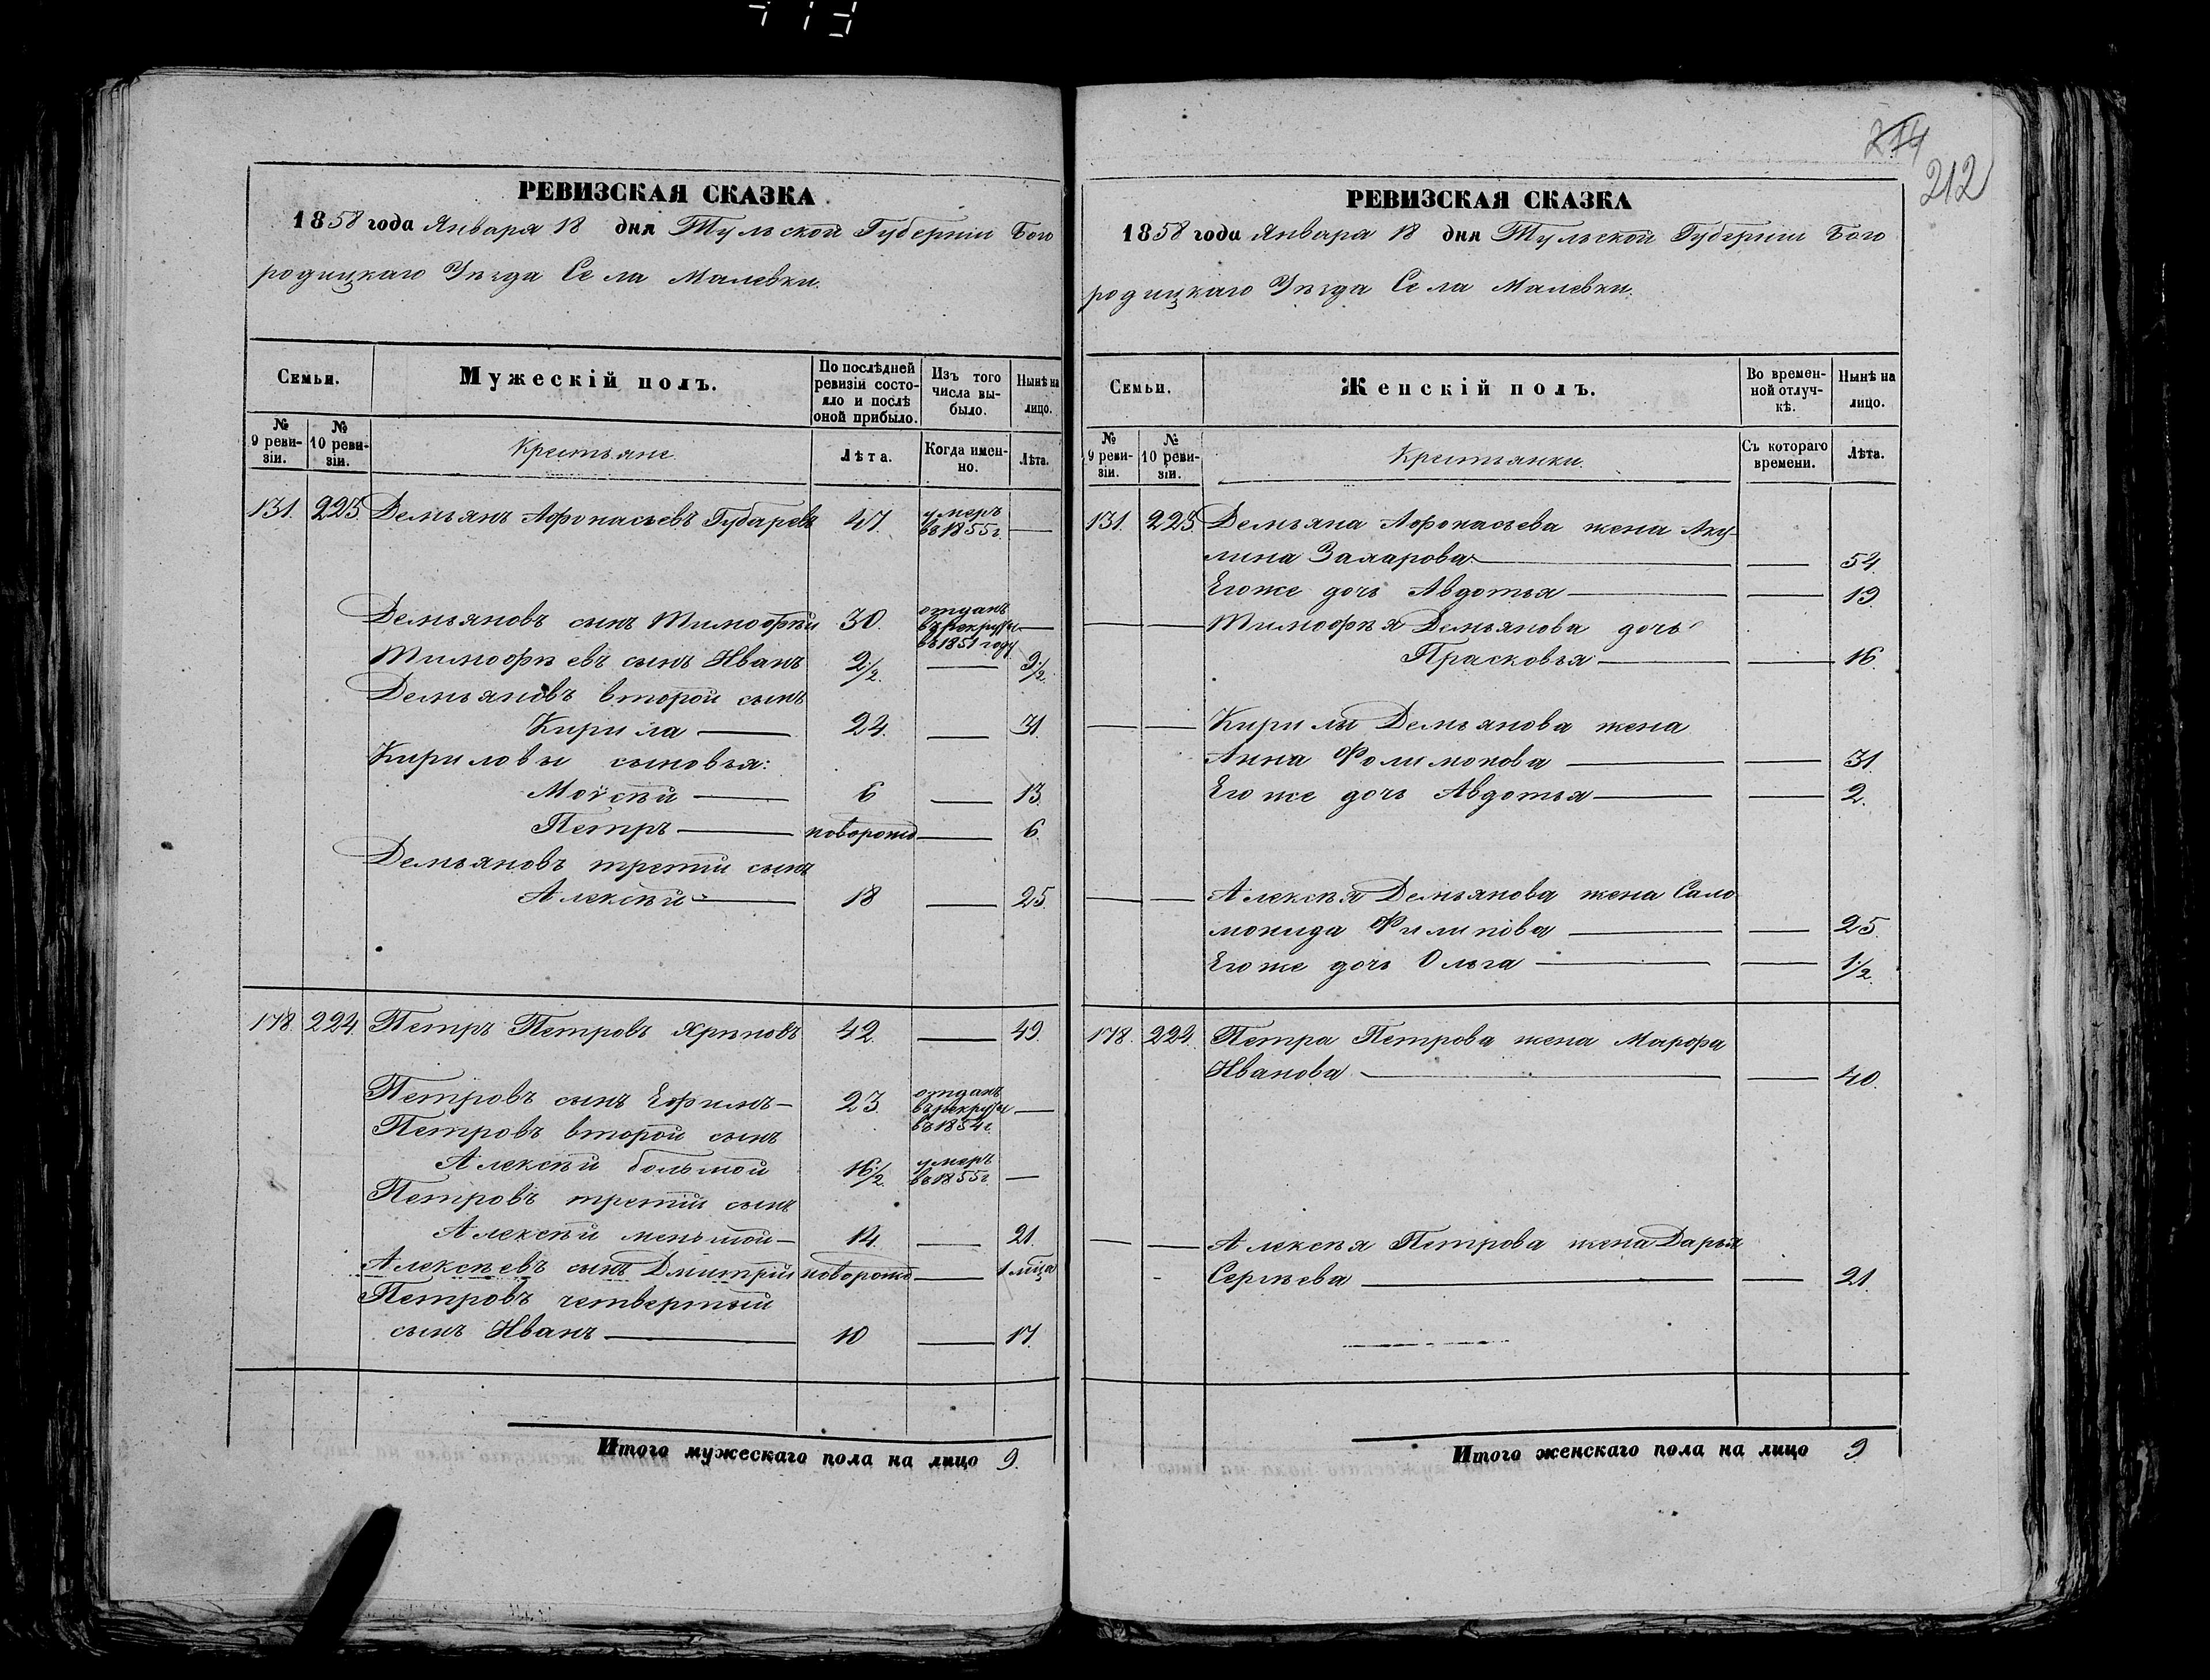 214
212
РЕВИЗСКАЯ СКАЗКА
1858 года Января 18 дня Тульской Губерніи Бого
родицкаго Уѣзда Села Малевки.
Семьи.
Мужескій полъ.
По послѣдней ревизіи состо-
яло и послѣ оной прибыло.
Изъ того числа вы-
было.
Нынѣ на лицо.
№ 9 реви-
зіи.
№ 10 реви-
зіи.
Крестьяне
Лѣта.
Когда имен-
но.
Лѣта.
131. 225. Демьянъ Афонасьевъ Губаревъ 47. умеръ
въ 1855 г. —
Демьяновъ сынъ Тимофѣй 30. отданъ
въ рекруты —
въ 1851 году
Тимофѣевъ сынъ Иванъ 2½. — 9½.
Демьяновъ второй сынъ
Кирила — 24. — 31.
Кириловы сыновья:
Мойсѣй — 6 — 13.
Петръ — новорожд — 6.
Демьяновъ третій сынъ
Алексѣй — 18 — 25.
178. 224. Петръ Петровъ Хрѣновъ 42. — 49.
Петровъ сынъ Ефимъ — 23. отданъ
въ рекруты —
въ 1854 г.
Петровъ второй сынъ
Алексѣй большой 16½. умеръ
въ 1855 г. —
Петровъ третій сынъ
Алексѣй меньшой — 14. — 21.
Алексѣевъ сынъ Дмитрій новорожд — 1 мѣца
Петровъ четвертый
сынъ Иванъ — 10 — 17.
Итого мужескаго пола на лицо 9.
РЕВИЗСКАЯ СКАЗКА
1858 года Января 18 дня Тульской Губерніи Бого
родицкаго Уѣзда Села Малевки.
Семьи.
Женскій полъ.
Во времен-
ной отлуч-
кѣ.
Нынѣ на лицо.
№ 9 реви-
зіи.
№ 10 реви-
зіи.
Крестьянки.
Съ котораго времени.
Лѣта.
131. 225. Демьяна Афонасьева жена Аку-
лина Захарова — — 54.
Егоже дочь Авдотья — — 19.
— — Тимофѣя Демьянова дочь
Прасковья — — 16.
— — Кирилы Демьянова жена
Анна Фолимонова — — 31.
Егоже дочь Авдотья — — 2.
— — Алексѣя Демьянова жена Сало
монида Филипова — — 25.
Егоже дочь Ольга — — 1½.
178. 224. Петра Петрова жена Марфа
Иванова — — 40.
— — Алексѣя Петрова жена Дарья
Сергѣева — — 21.
Итого женскаго пола на лицо 9